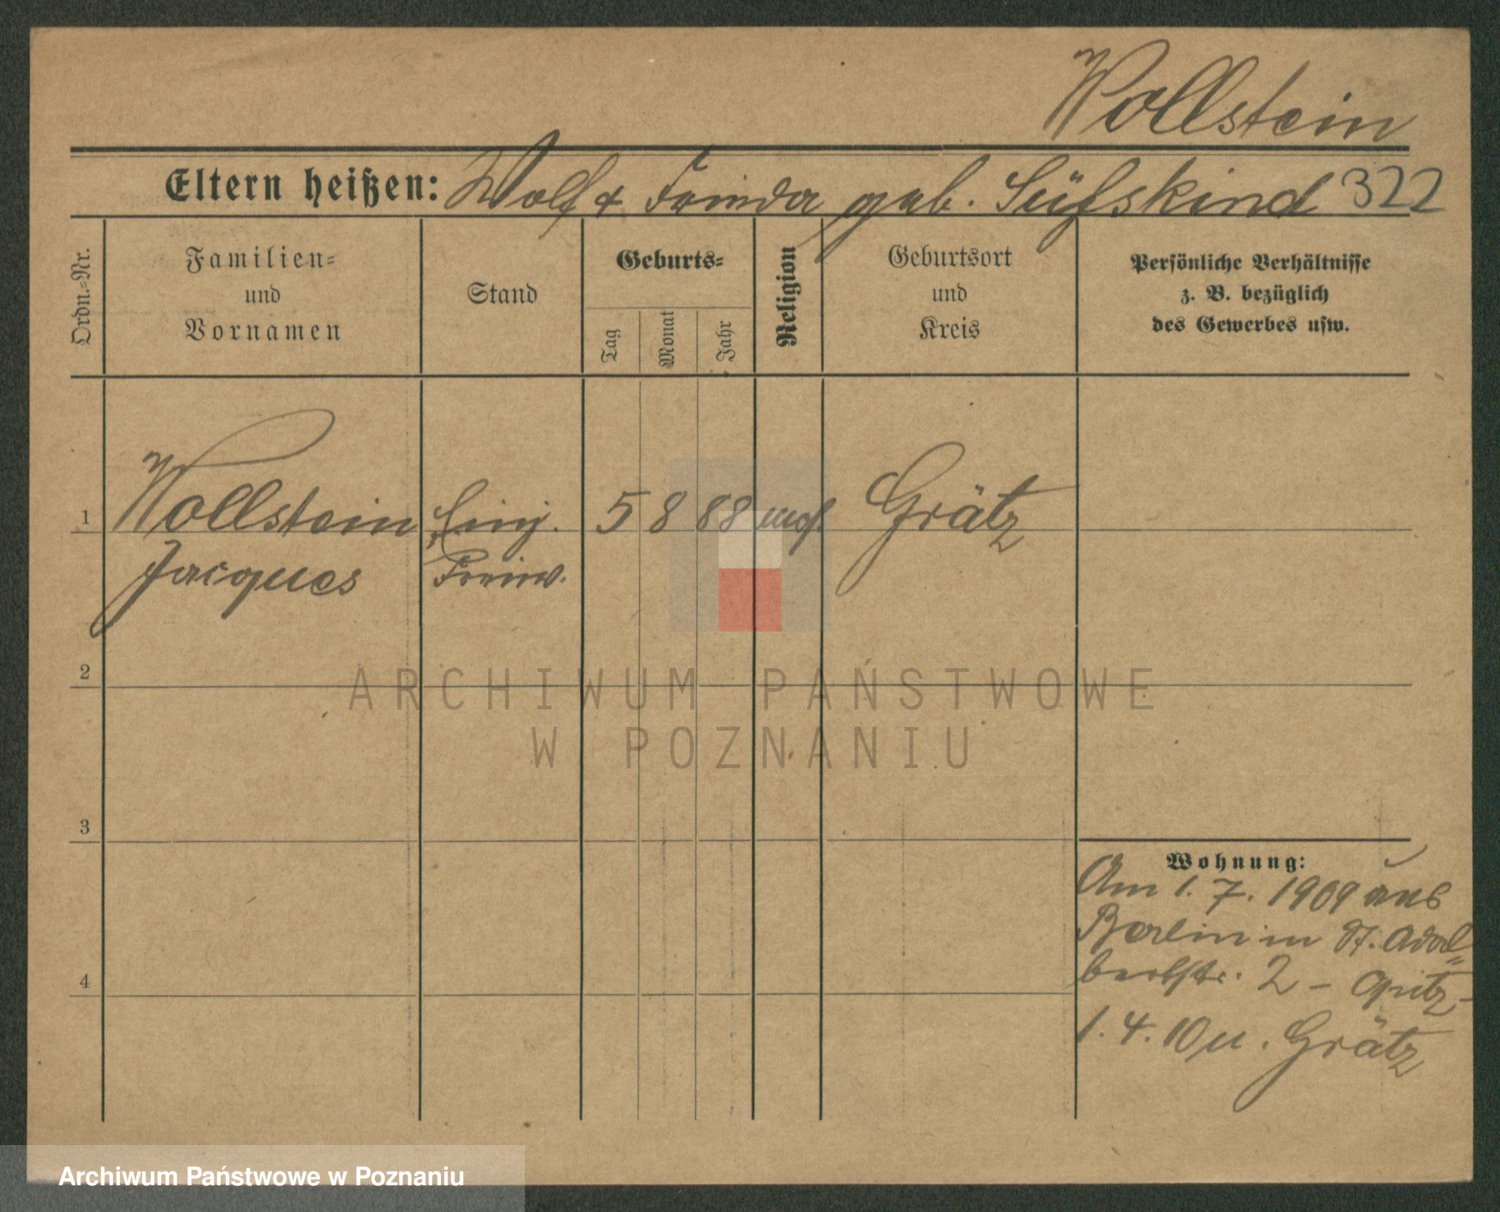 Wollstein
Eltern heißen: Wolf & Frieda geb. Süßskind 322
Ordn.-Nr.
Familien-
und
Vornamen
Stand
Geburts-
Tag
Monat
Jahr
Religion
Geburtsort
und
Kreis
Persönliche Verhältnisse
z. B. bezüglich
des Gewerbes usw.
1 Wollstein Einj. 5 8 88 mos. Grätz
Jacques Freiw.
2
ARCHIWUM PAŃSTWOWE
W POZNANIU
3
Wohnung:
Am 1. 7. 1909 aus
Berlin in St. Adal„
bertstr. 2 – Opitz –
4
1. 4. 10 n. Grätz
Archiwum Państwowe w Poznaniu